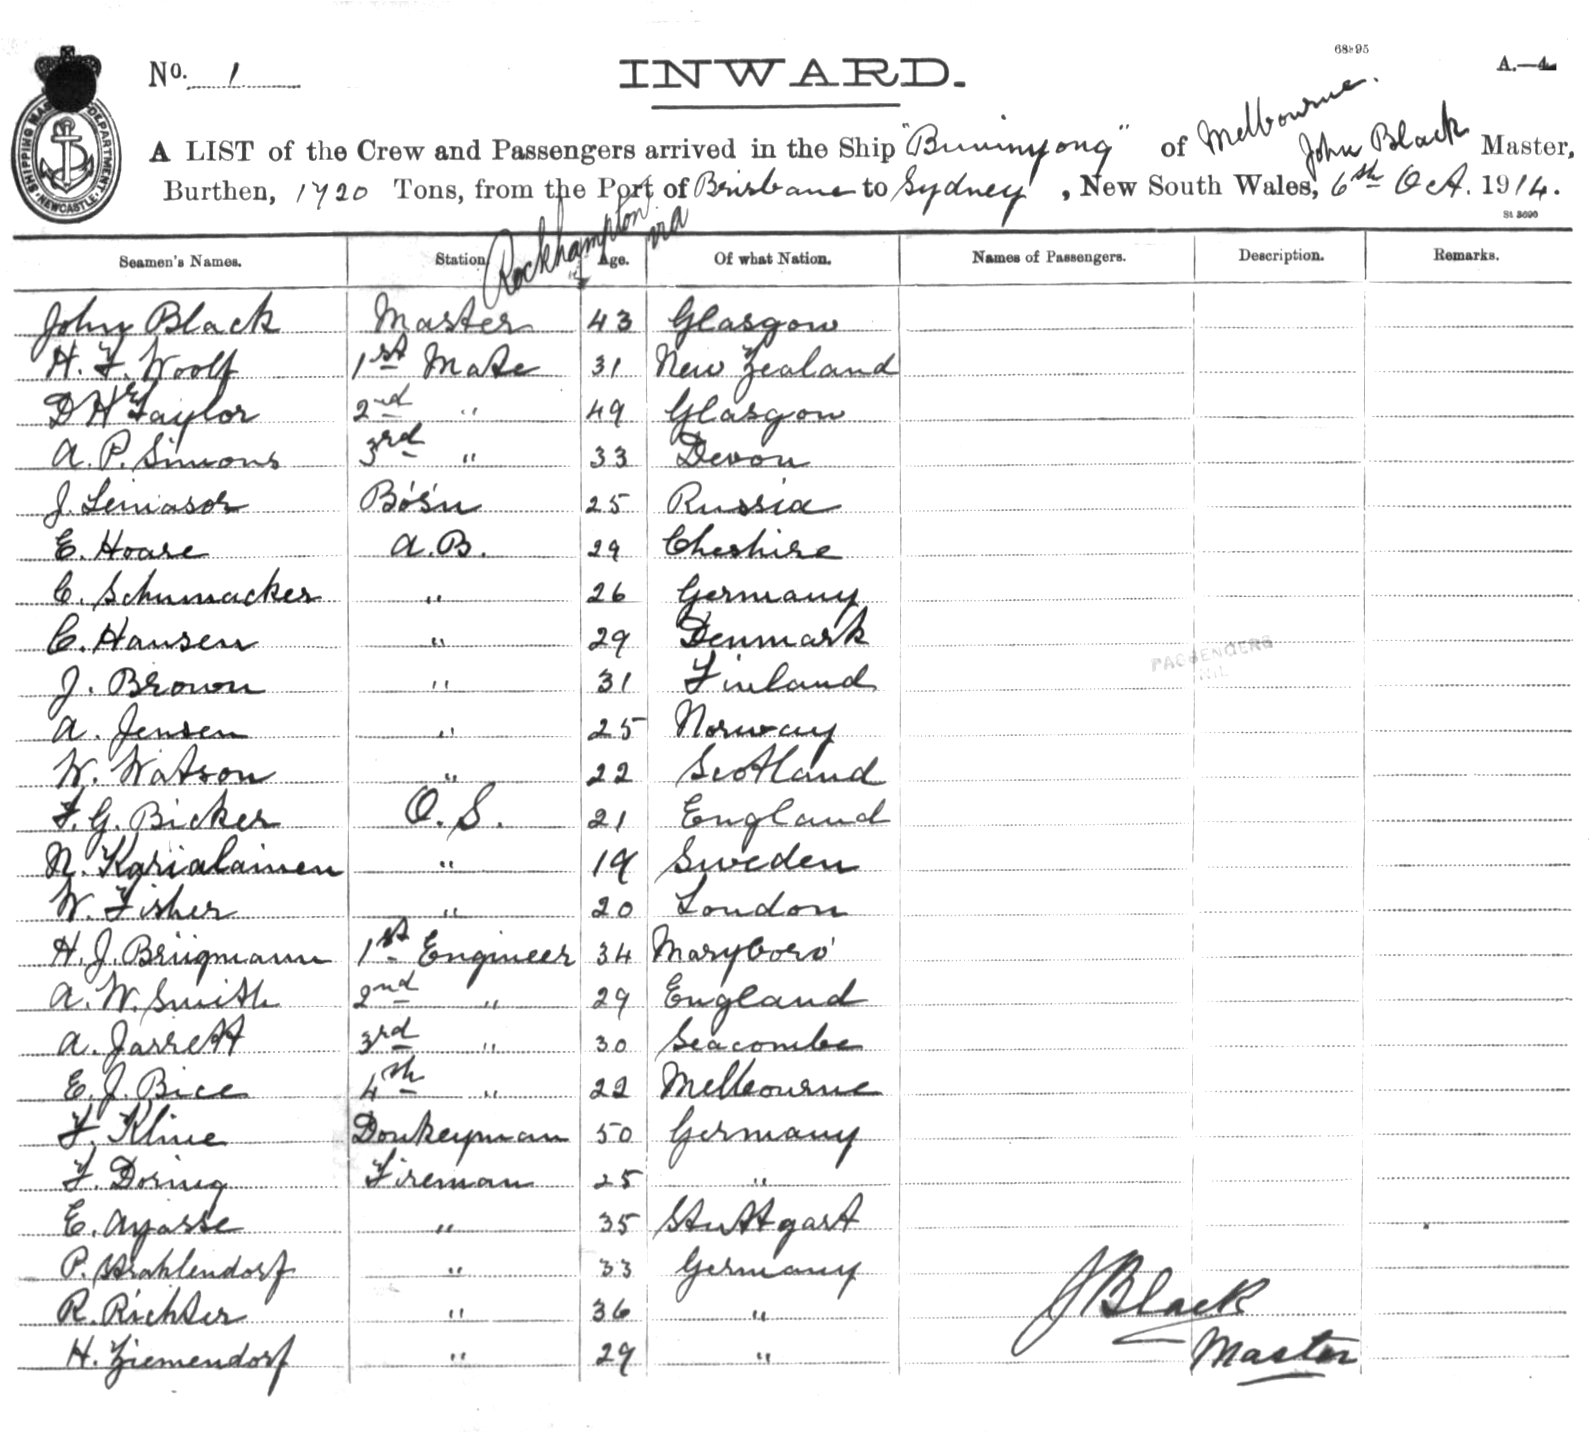 No. 1 INWARD. 68895 A.—4
SHIPPING MASTER'S DEPARTMENT. NEWCASTLE.
A LIST of the Crew and Passengers arrived in the Ship "Buninyong" of Melbourne. John Black Master,
Burthen, 1720 Tons, from the Port of Brisbane to Sydney, New South Wales, 6th Oct. 1914.
Rockhampton via
St 3690
Seamen's Names. Station Age. Of what Nation. Names of Passengers. Description. Remarks.
John Black Master 43 Glasgow
H. F. Woolf 1st Mate 31 New Zealand
D Hr Taylor 2nd " 49 Glasgow
A. P. Simons 3rd " 33 Devon
J. Leniasor Bo'sn 25 Russia
E. Hoare A.B. 29 Cheshire
C. Schumacker " 26 Germany
C. Hansen " 29 Denmark
PASSENGERS
NIL
J. Brown " 31 Finland
A. Jensen " 25 Norway
W. Watson " 22 Scotland
F. G. Bicker O.S. 21 England
N. Karialainen " 19 Sweden
W. Fisher " 20 London
H. J. Brügmann 1st Engineer 34 Maryboro'
A. W. Smith 2nd " 29 England
A. Jarrett 3rd " 30 Seacombe
E. J. Bice 4th " 22 Melbourne
F. Kline Donkeyman 50 Germany
F. Doring Fireman 25 "
E. Ayasse " 35 Stuttgart
P. Strahlendorf " 33 Germany
R. Richter " 36 "
H. Ziemendorf " 29 "
J Black
Master